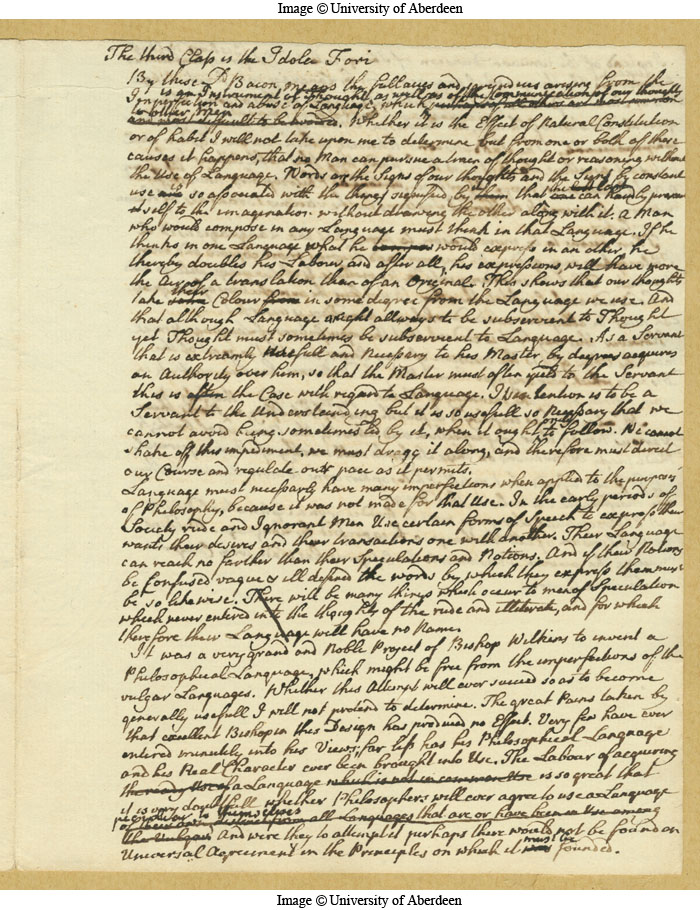 Image © University of Aberdeen
The third Class is the Idola Fori
By these Ld Bacon means the fallacies and prejudices arising from the
It is an Instrument of Thought as well as of the Communication of our thoughts
Imperfection and abuse of Language, which are most common
to other Men
and most difficult to be avoided. Whether it is the Effect of Natural Constitution
or of habit I will not take upon me to determine but from one or both of these
causes it happens, that no Man can pursue a train of thought or reasoning without
the Use of Language. Words are the Signs of our thoughts and the Sign by constant
use is so associated with the thing signified by that the one can hardly present
itself to the imagination without drawing the other along with it. A Man
who would compose in any Language must think in that Language. If he
thinks in one Language what he would express in an other he
thereby doubles his Labour, and after all, his expressions will have more
the Air of a translation than of an Original. This shews that our thoughts
take their Colour in some degree from the Language we use. And
that although Language ought allways to be subservient to Thought
yet Thought must sometimes be subservient to Language. As a Servant
that is extremely usefull and Necessary to his Master, by degrees acquires
an Authority over him, so that the Master must often yield to the Servant
this is often the Case with regard to Language. Its intention is to be a
Servant to the Understanding but it is so usefull so Necessary that we
cannot avoid being sometimes led by it, when it ought to follow. We cannot
shake off this impediment, we must dragg it along, and therefore must direct
our Course and regulate our pace as it permits.
Language must necessarly have many imperfections when applied to the purposes
of Philosophy, because it was not made for that Use. In the early periods of
Society rude and Ignorant Men Use certain forms of Speech to express their
wants their desires and their transactions one with another. Their Language
can reach no farther than their Speculations and Notions. And if their Notions
be confused vague & ill defined the words by which they express them must
be so likewise. There will be many things which occur to men of Speculation
which never entered into the thoughts of the rude and illiterate, and for which
therefore their Language will have no Name.
It was a very grand and Noble Project of Bishop Wilkins to invent a
Philosophical Language, which might be free from the imperfections of the
vulgar Languages. Whether this Attempt will ever succeed so as to become
generally usefull I will not pretend to determine. The great Pains taken by
that excellent Bishop in this Design has produced no Effect. Very few have ever
entered minutely into his Views, far less has his Philosophical Language
and his Real Character ever been brought into Use. The Labour of acquiring
the ready Use of a Language which is not in common Use is so great that
it is very doubtfull whether Philosophers will ever agree to use a Language
peculiar to themselves
of their own distinct from all Languages that are or have been in Use among
the Vulgar And were they to attempt it perhaps there would not be found an
must be
Universal Agreement in the Principles on which it was founded.
Image © University of Aberdeen